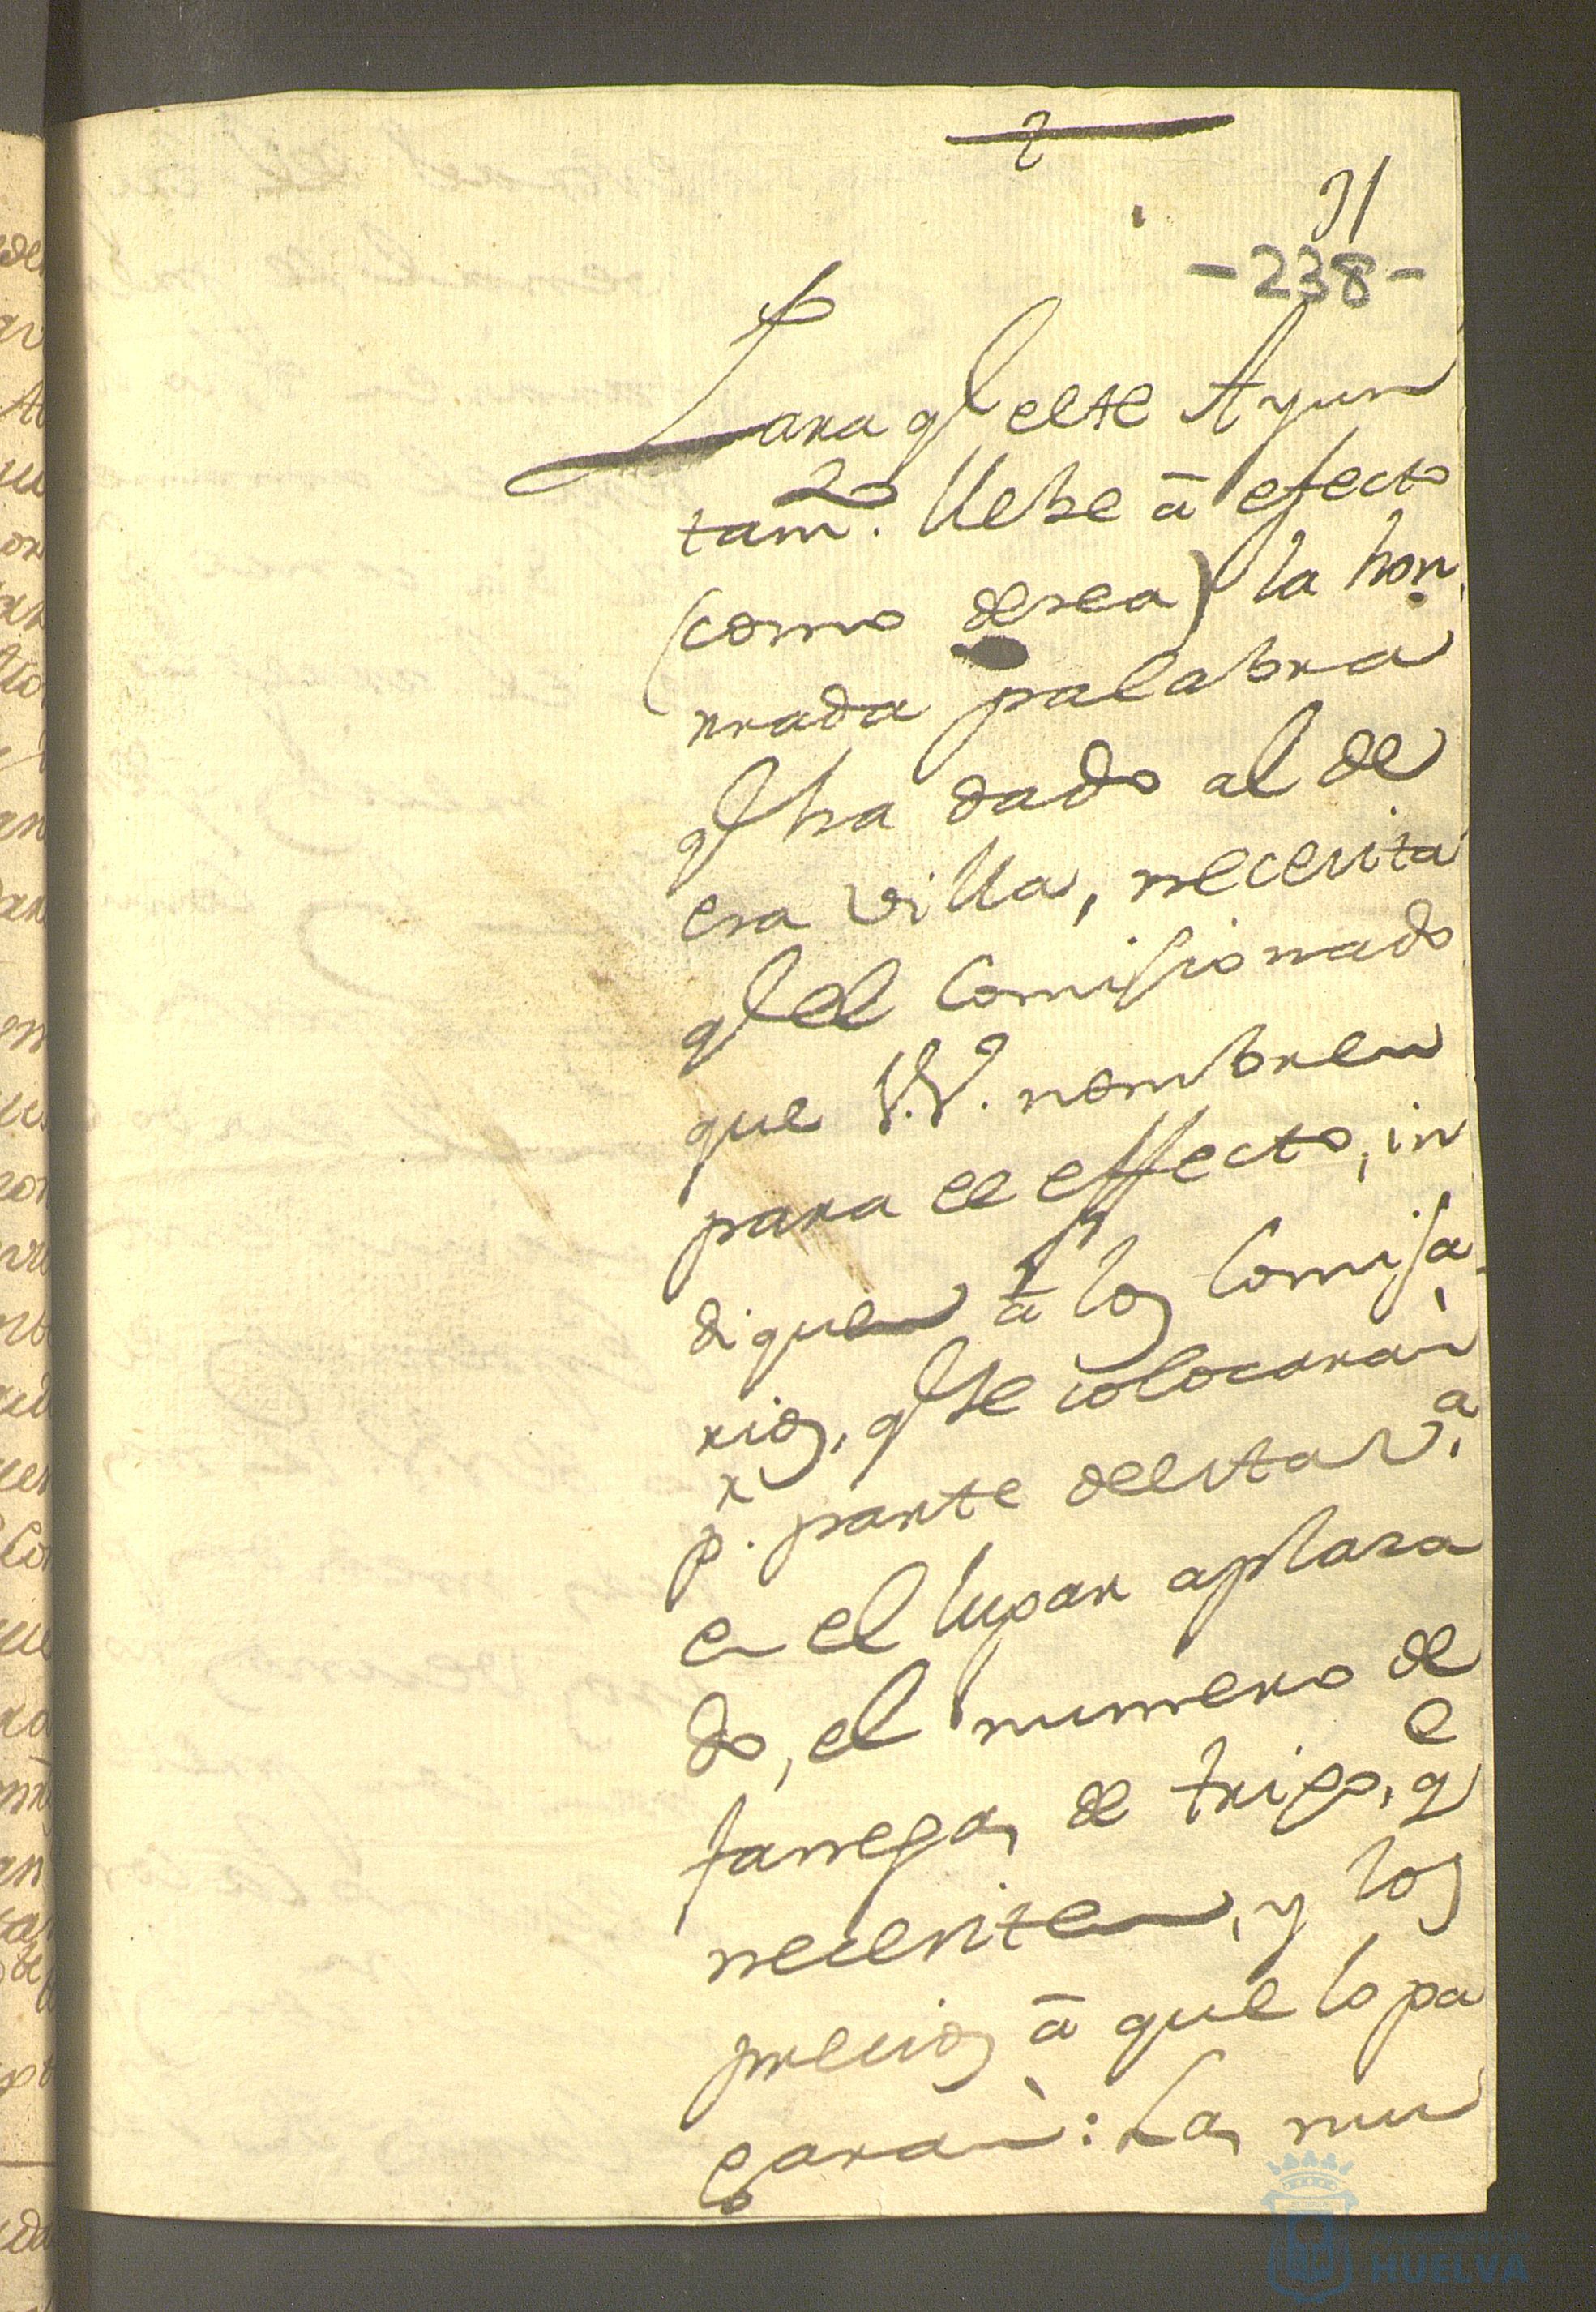 31
-238-
Para q.e este Ayun
tam.to llebe â efecto
(como desea) la hon
rrada palabra
q.e ha dado al de
esa villa, necesita
q.e el Comisionado
que V.V. nombren
para el effecto, in
diquen â los Comisa
rios, q.e se colocaràn
p.r parte de esta V.a
en el lugar aplasa
do, el numero de
fanegas de trigo, q.e
necesiten, y los
precios â que lo pa
garàn: Las mu
HUELVA